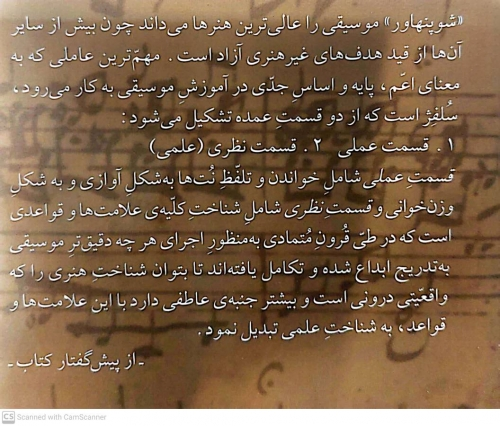 «شوپنهاور» موسیقی را عالی‌ترین هنرها می‌داند چون بیش از سایر
آن‌ها از قید هدف‌های غیرهنری آزاد است. مهم‌ترین عاملی که به
معنای اعّم، پایه و اساسِ جدّی در آموزشِ موسیقی به کار می‌رود،
سُلفِژ است که از دو قسمتِ عمده تشکیل می‌شود:
۱. قسمت عملی ۲. قسمت نظری (علمی)
قسمتِ عملی شاملِ خواندن و تلفّظِ نُت‌ها به‌شکلِ آوازی و به شکلِ
وزن‌خوانی و قسمتِ نظری شاملِ شناختِ کلّیه‌ی علامت‌ها و قواعدی
است که در طیّ قُرونِ مُتمادی به‌منظورِ اجرای هر چه دقیق‌ترِ موسیقی
به‌تدریج ابداع شده و تکامل یافته‌اند تا بتوان شناختِ هنری را که
واقعیّتی درونی است و بیشتر جنبه‌ی عاطفی دارد با این علامت‌ها و
قواعد، به شناختِ علمی تبدیل نمود.
ـ از پیش‌گفتار کتاب ـ
CS Scanned with CamScanner